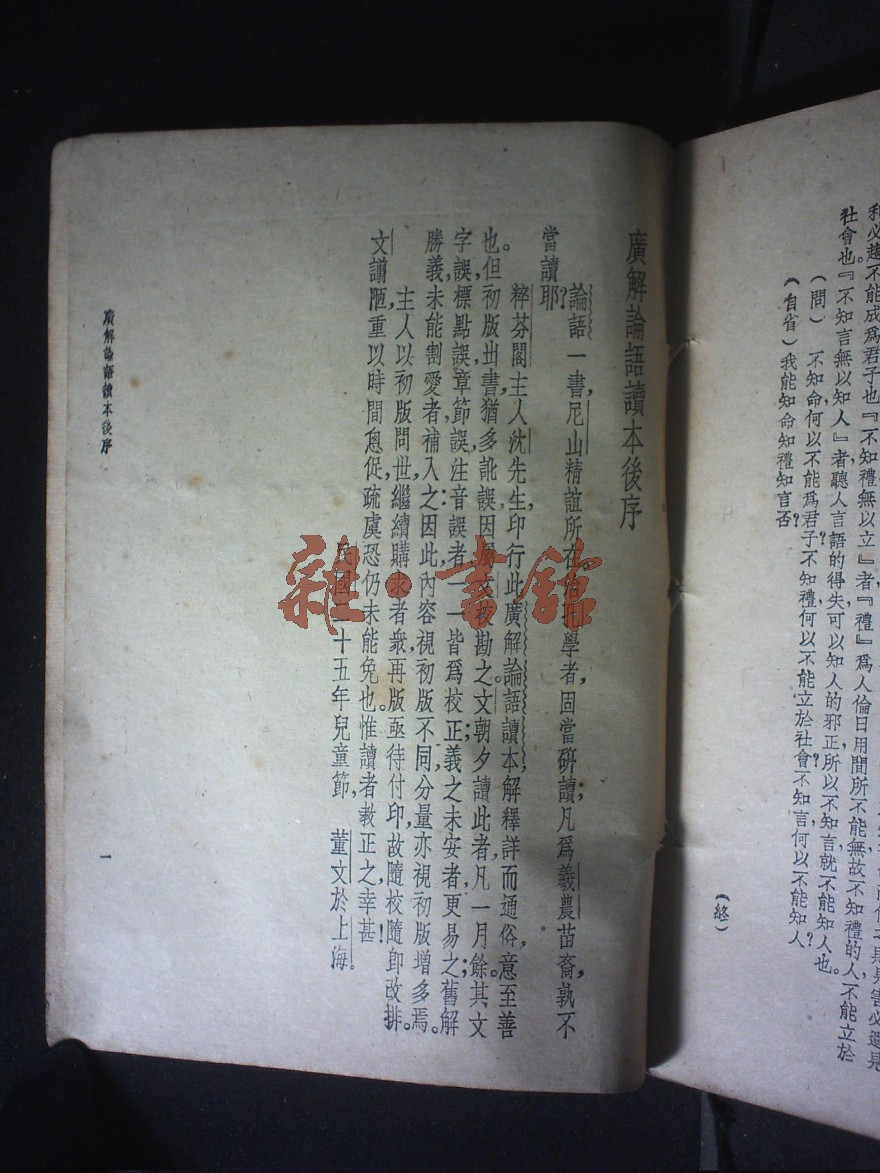 和必趨
不能成爲君子也『不知禮無以立』者『禮』爲人倫日用間所不能無故不知禮的人不能立於
社會也。『不知言無以知人』者聽人言語的得失可以知人的邪正所以不知言就不能知人也。
(問) 不知命何以不能爲君子？不知禮何以不能立於社會？不知言何以不能知人？
(自省) 我能知命知禮知言否？
(終)
廣解論語讀本後序
論語一書，尼山精誼所在，孔學者，固當研讀；凡爲羲農苗裔，孰不
當讀耶？
粹芬閣主人沈先生，印行此廣解論語讀本，解釋詳而通俗，意至善
也。但初版出書，猶多訛誤，因屬文校勘之。文朝夕讀此者，凡一月餘。其文
字誤，標點誤，章節誤，注音誤者，一一皆爲校正；義之未安者，更易之；舊解
勝義，未能割愛者，補入之：因此，內容視初版不同，分量亦視初版增多焉。
主人以初版問世，繼續購求者衆，再版亟待付印，故隨校隨卽改排。
文謭陋，重以時間悤促，疏虞恐仍未能免也。惟讀者敎正之，幸甚！
民國二十五年兒童節，董文於上海。
廣解論語讀本後序
一
雜·書館